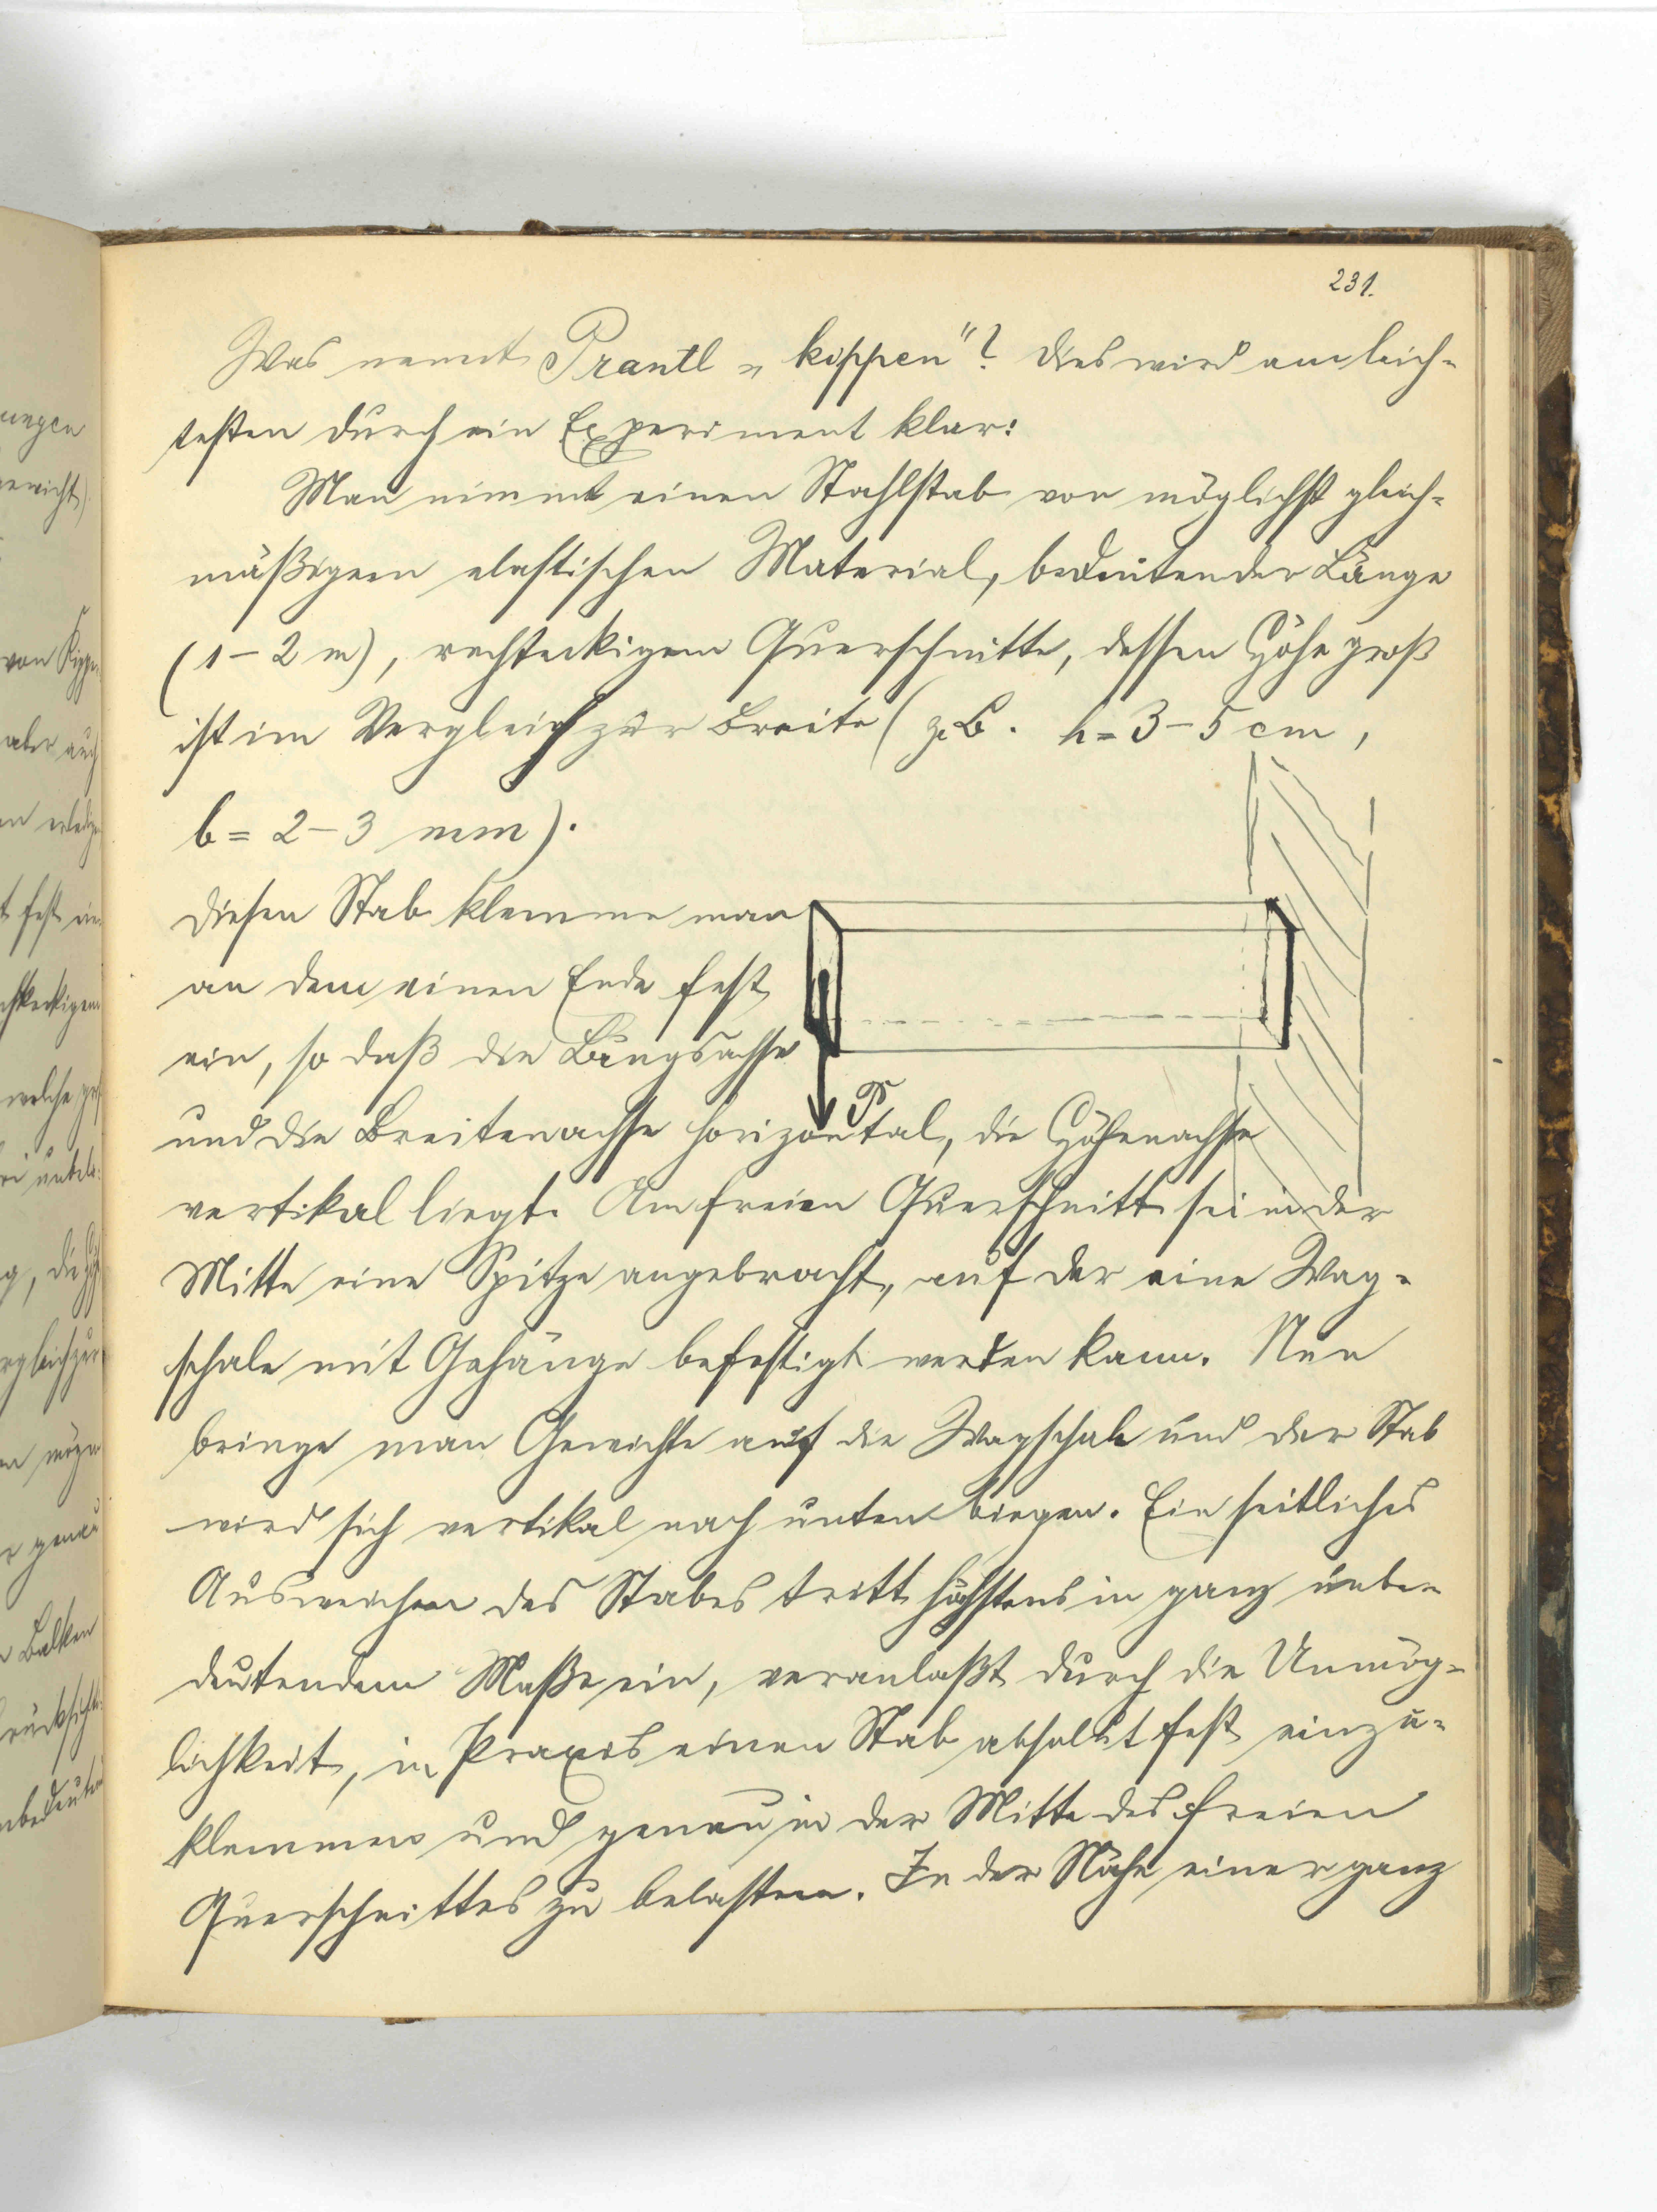 231.
Was nennt Prantl „kippen"? Dies wird am leich-
testen durch ein Experiment klar:
Man nimmt einen Stahlstab von möglichst gleich-
mäßigem elastischen Material, bedeutender Länge
(1-2 m), rechteckigem Querschnitte, dessen Höhe groß
ist im Vergleich zur Breite (z.B. h=3-5 cm,
b=2-3 mm).
Diesen Stab klemme man
an dem einen Ende fest
ein, so daß die Längsachse
P
und die Breitenachse horizontal, die Höhenachse
vertikal liegt. Am freien Querschnitt sei in der
Mitte eine Spitze angebracht, auf der eine Wag-
schale mit Gehänge befestigt werden kann. Nun
bringe man Gewichte auf die Wagschale und der Stab
wird sich vertikal nach unten biegen. Ein seitliches
Ausweichen des Stabes tritt höchstens in ganz unbe-
deutendem Maße ein, veranlaßt durch die Unmög-
lichkeit, in Praxis einen Stab absolut fest einzu-
klemmen und genau in der Mitte des freien
Querschnittes zu belasten. In der Nähe einer ganz
ungen
gewicht)
von Kippe
aber auch
t fest ein
welche
g, die
Balken